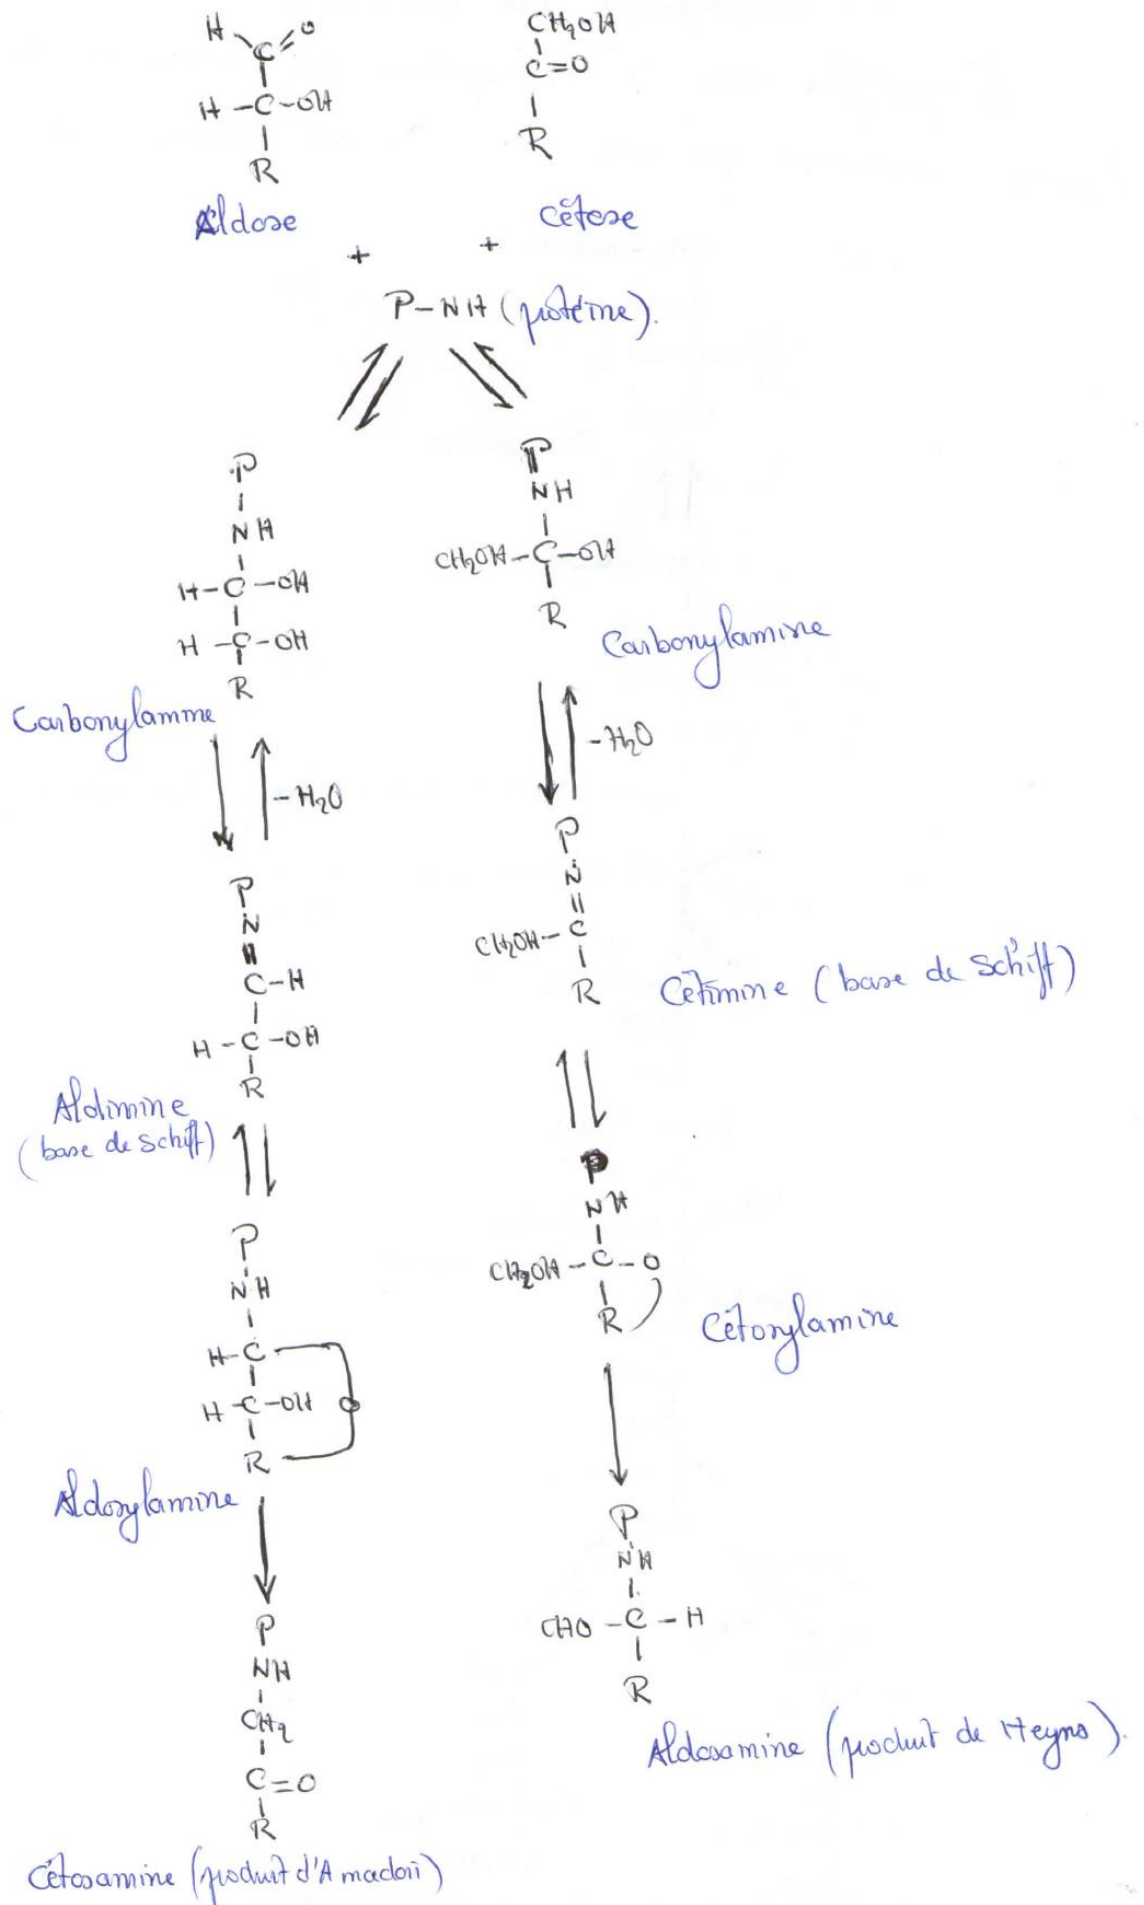 H C=O
H-C-OH
R
Aldose
CH2OH
C=O
R
Cétose
+ +
P-NH (protéine).
P
NH
H-C-OH
H-C-OH
R
Carbonylamine
-H2O
P
N
C-H
H-C-OH
R
Aldimine
(base de Schiff)
P
NH
H-C
H-C-OH O
R
Aldosylamine
P
NH
CH2
C=O
R
Cétosamine (produit d'Amadori)
P
NH
CH2OH-C-OH
R
Carbonylamine
-H2O
P
N
CH2OH-C
R
Cétimine (base de Schiff)
P
NH
CH2OH-C-O
R
Cétosylamine
P
NH
CHO-C-H
R
Aldosamine (produit de Heyns).